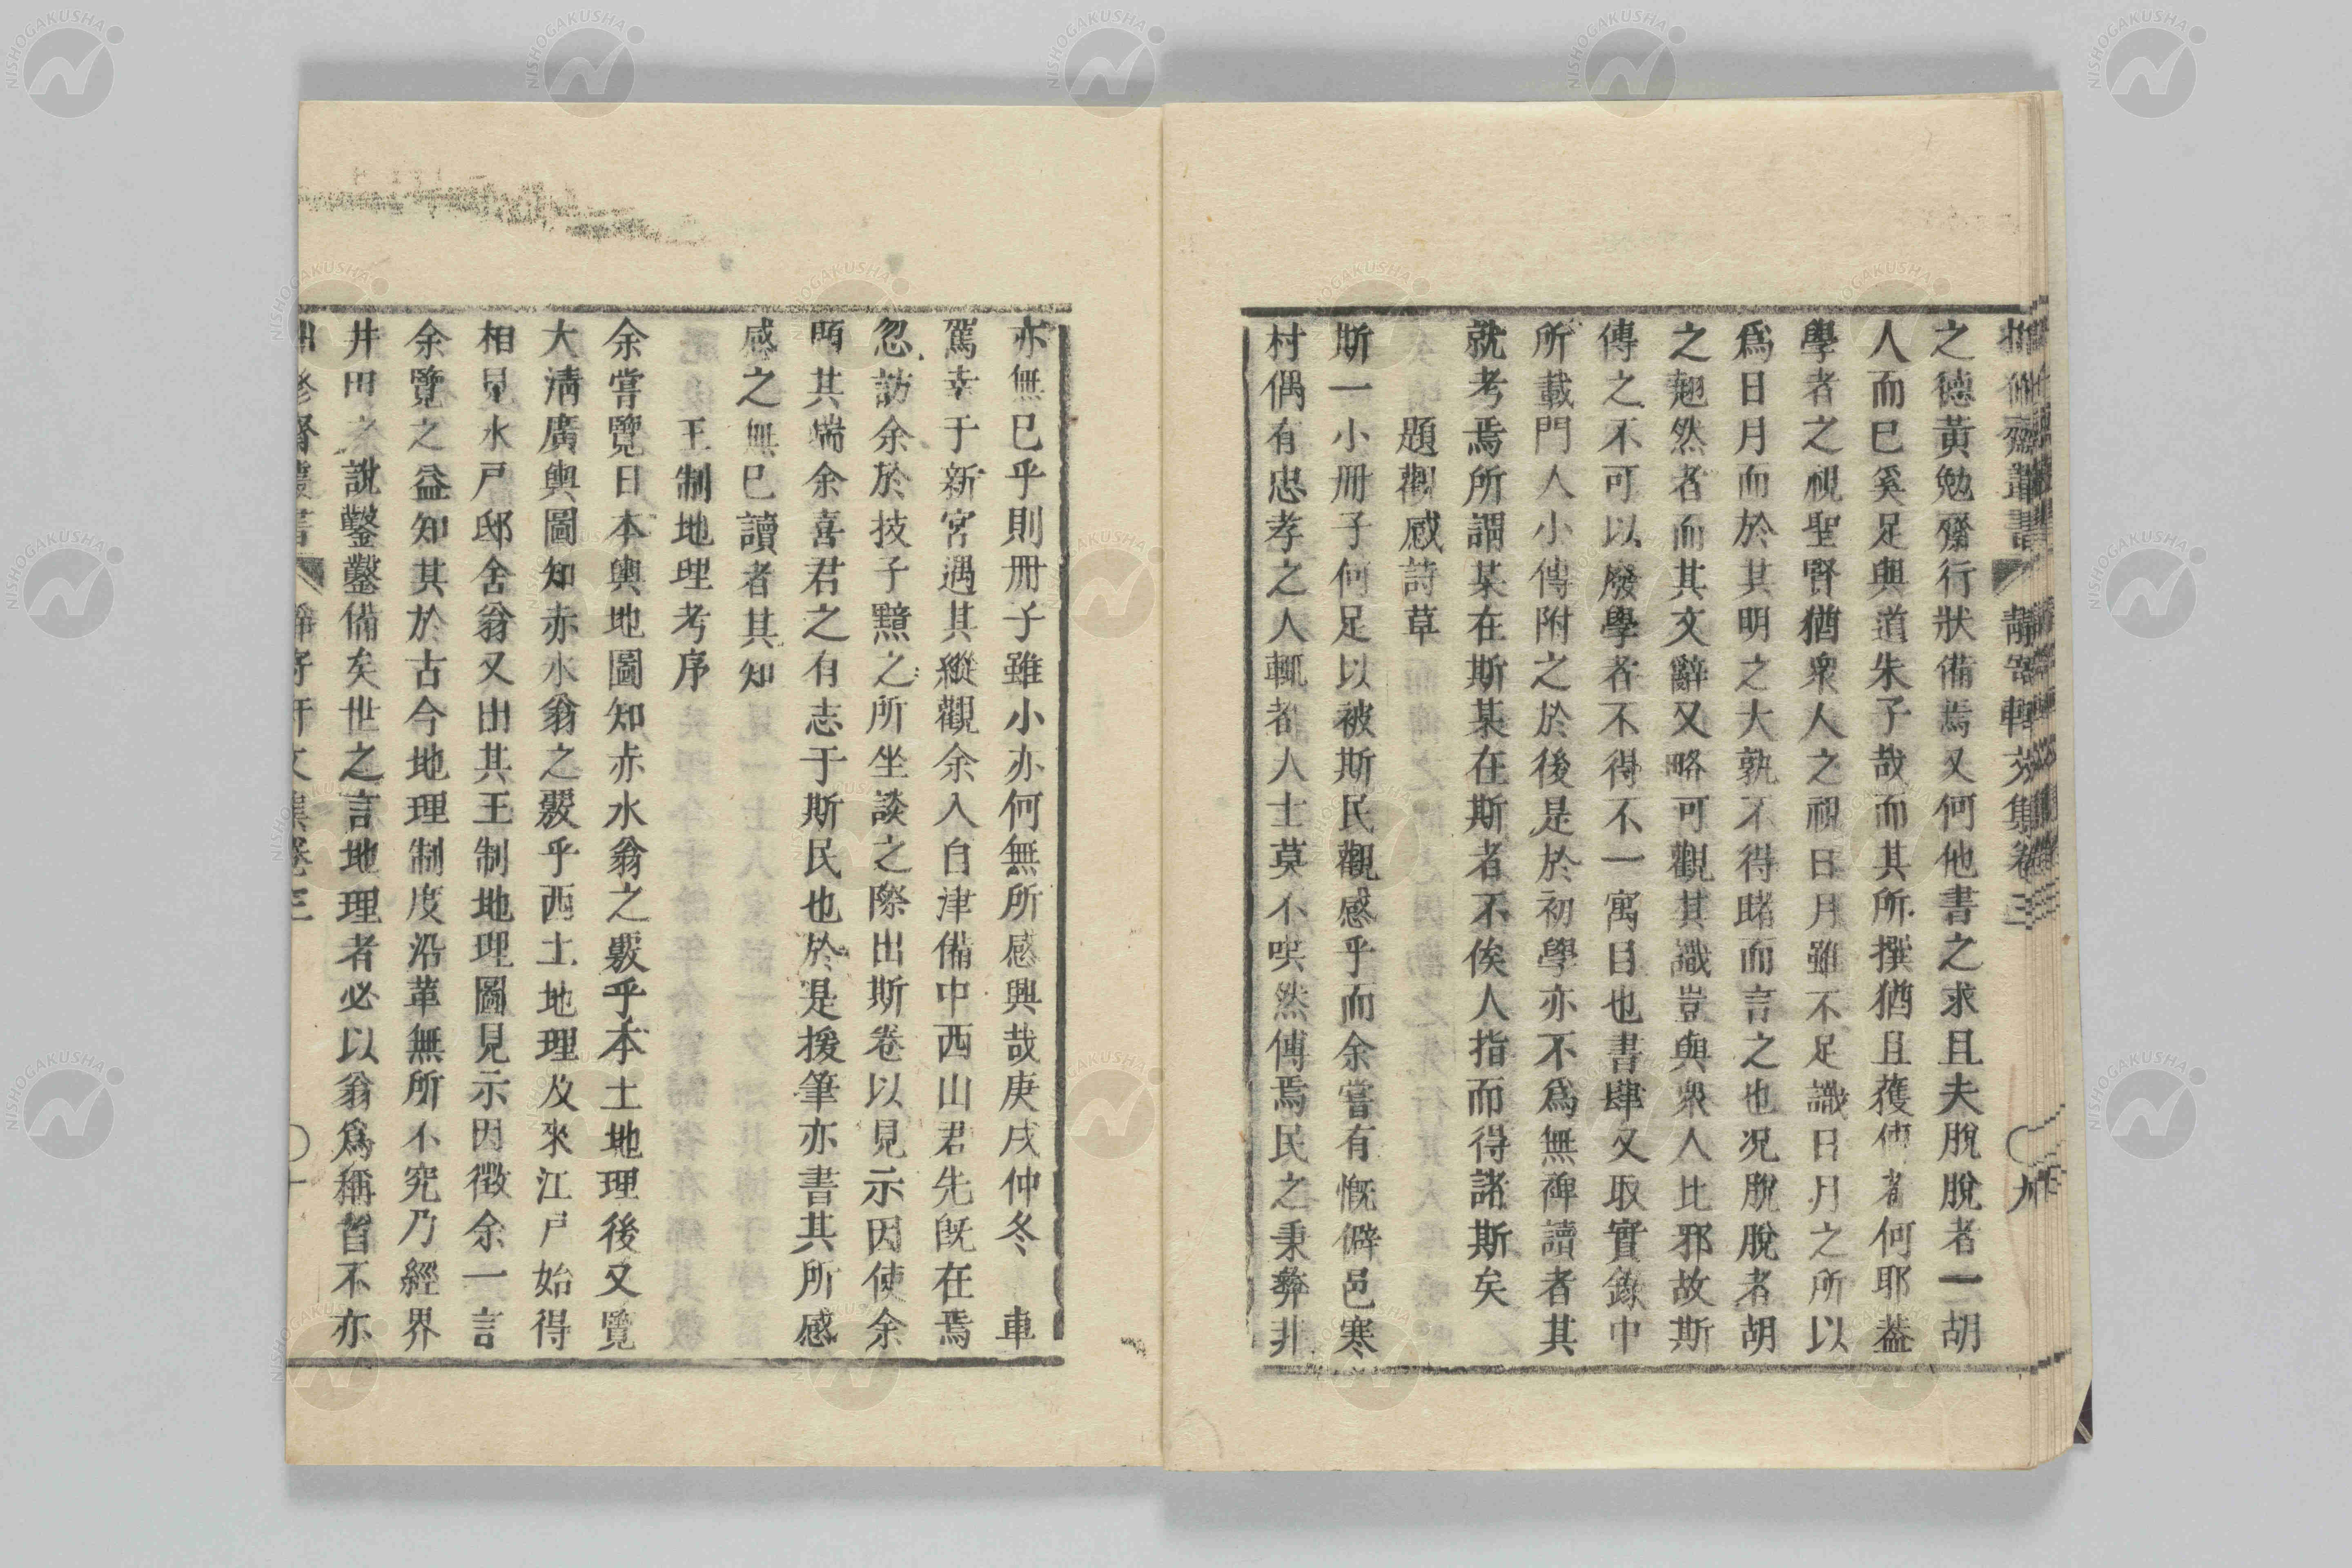 拙修齋叢書 靜寄軒文集卷三 〇九
之德黃勉齋行狀備焉又何他書之求且夫脫脫者一胡
人而已奚足與道朱子哉而其所撰猶且蓷傳者何耶葢
學者之視聖賢猶衆人之視日月雖不足識日月之所以
爲日月而於其明之大孰不得睹而言之也况脫脫者胡
之翹然者而其文辭又略可觀其識豈與衆人比邪故斯
傳之不可以廢學者不得不一寓目也書肆又取實錄中
所載門人小傳附之於後是於初學亦不爲無裨讀者其
就考焉所謂某在斯某在斯者不俟人指而得諸斯矣
題觀感詩草
斯一小冊子何足以被斯民觀感乎而余嘗有慨僻邑寒
村偶有忠孝之人輒都人士莫不哄然傳焉民之秉彝非
亦無已乎則冊子雖小亦何無所感興哉庚戌仲冬 車
駕幸于新宮遇其縱觀余入自津備中西山君先旣在焉
忽訪余於技子黰之所坐談之際出斯卷以見示因使余
題其端余喜君之有志于斯民也於是援筆亦書其所感
感之無已讀者其知
王制地理考序
余嘗覽日本輿地圖知赤水翁之覈乎本土地理後又覽
大淸廣輿圖知赤水翁之覈乎西土地理及來江戶始得
相見水戶邸舍翁又出其王制地理圖見示因徵余一言
余覽之益知其於古今地理制度沿革無所不究乃經界
井田之說鑿鑿備矣世之言地理者必以翁爲稱首不亦
拙修齋叢書 靜寄軒文集卷三 〇十